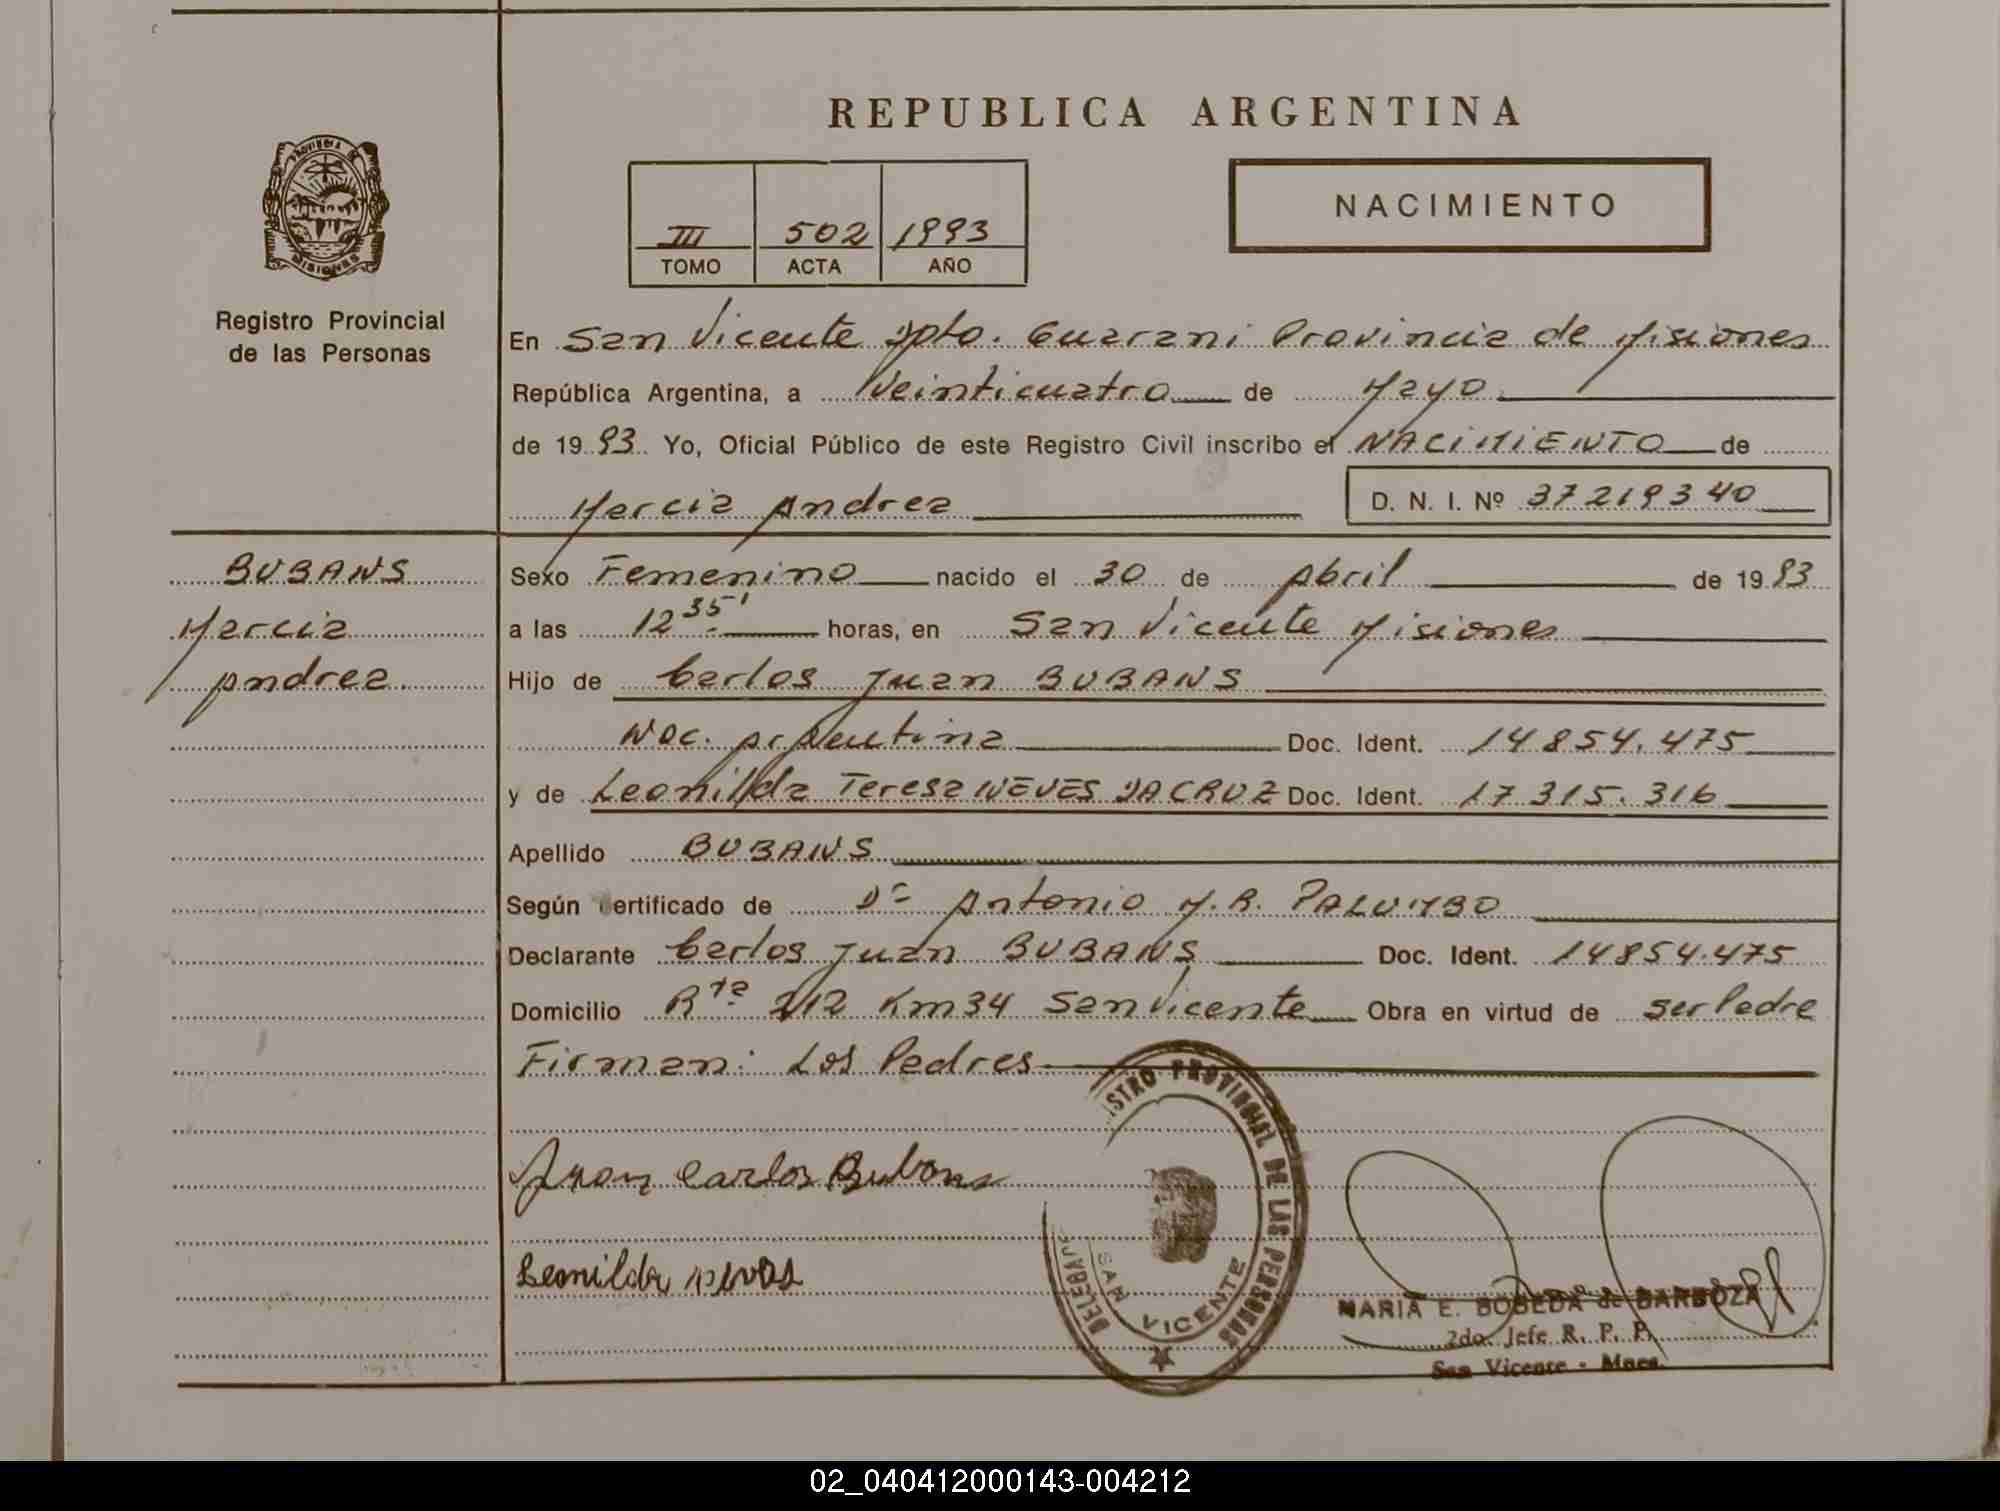 REPUBLICA ARGENTINA
PROVINCIA DE
MISIONES
Registro Provincial
de las Personas
III 502 1993
TOMO ACTA AÑO
NACIMIENTO
En San Vicente Dpto. Guarani Provincia de Misiones
República Argentina, a Veinticuatro de Mayo
de 1993 Yo, Oficial Público de este Registro Civil inscribo el NACIMIENTO de
Marcia Andrea D. N. I. Nº 37219340
BUBANS
Marcia
Andrea
Sexo Femenino nacido el 30 de Abril de 1993
a las 12 35' horas, en San Vicente Misiones
Hijo de Carlos Juan BUBANS
Nac. Argentina Doc. Ident. 14854.475
y de Leonilda Teresa NEVES DACRUZ Doc. Ident. 17315.316
Apellido BUBANS
Según certificado de Dr Antonio M.R. PALUMBO
Declarante Carlos Juan BUBANS Doc. Ident. 14854.475
Domicilio Rta 212 Km34 San Vicente Obra en virtud de ser Padre
Firman: Los Padres
Juan Carlos Bubans
Leonilda
ISTRO PROVINCIAL DE LAS PERSONAS
SAN VICENTE
MARIA E. BOBEDA de BARBOZA
2do. Jefe R. P. P.
San Vicente - Mnes.
02_040412000143-004212